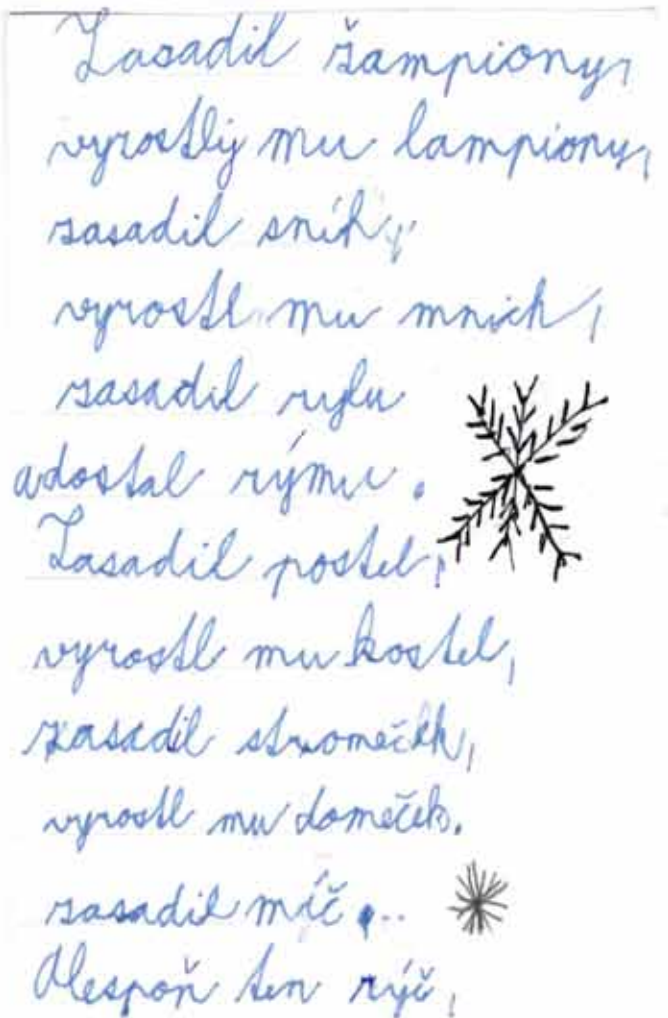 Zasadil šampiony,
vyrostly mu lampiony,
zasadil sníh,
vyrostl mu mnich,
zasadil rybu
a dostal rýmu.
Zasadil postel,
vyrostl mu kostel,
zasadil stromeček,
vyrostl mu domeček.
zasadil míč...
Alespoň ten rýč,